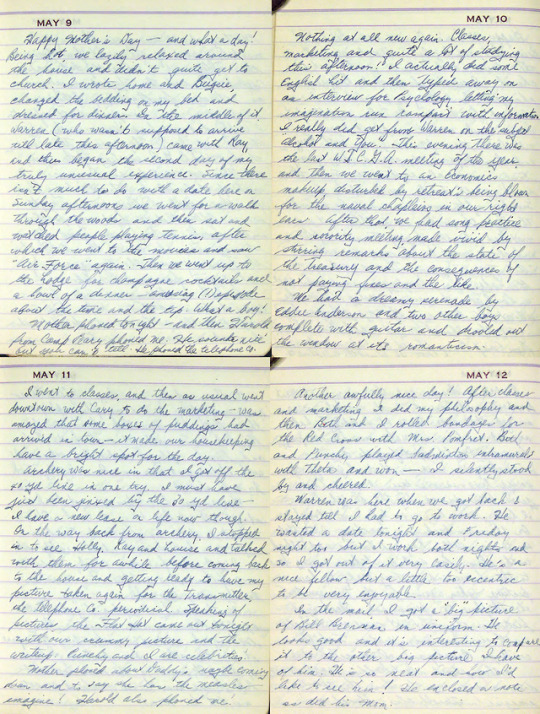 MAY 9
Happy Mother's Day — and what a day!
Being hot, we lazily relaxed around
the house and didn't quite get to
church. I wrote home and
changed the bedding on my bed and
dressed for dinner. In the middle of it
Warren (who wasn't supposed to arrive
till late this afternoon) came with Ray
and thus began the second day of my
truly unusual experience. Since there
isn't much to do with a date here on
Sunday afternoons we went for a walk
through the woods and then sat and
watched people playing tennis, after
which we went to the movies and saw
"Air Force" again. Then we went up to
the Lodge for champagne cocktails and
a bowl of a dinner — amusing (?) episode
about the time and the tip. What a boy!
Mother phoned tonight — and then Harold
from Camp Peary phoned me. He sounds nice
but who can tell. He phoned the telephone Co.
MAY 10
Nothing at all new again. Classes,
marketing and quite a bit of studying
this afternoon! I actually did some
English Lit and then typed away on
an interview for Psychology letting my
imagination run rampant with information
I really did get from Warren on the subject
"Alcohol and You". This evening there was
the last W.S.C.G.A. meeting of the year
and then we went to an Economics
makeup disturbed by retreat's being blown
for the naval chaplains in our right
ears. After that we had song practice
and sorority meeting made vivid by
stirring remarks about the state of
the treasury and the consequences of
not paying fines and the like.
We had a dreamy serenade by
Eddie Anderson and two other boys
complete with guitar and drooled out
the window at its romanticism.
MAY 11
I went to classes, and then as usual went
downtown with Cary to do the marketing — was
amazed that some boxes of puddings had
arrived in town — it made our housekeeping
have a bright spot for the day.
Archery was nice in that I got off the
40 yd line in one try. I must have
just been jinxed by the 30 yd line
I have a new lease on life now though.
On the way back from archery I stopped
in to see Holly, Kay and Louise and talked
with them for awhile before coming back
to the house and getting ready to have my
picture taken again for the Transmitter,
the telephone Co. periodical. Speaking of
pictures the Flat Hat came out tonight
with our picture and the
writeup. and I are celebrities!
Mother phoned about Daddy's coming
down and to say she has the measles —
imagine! Harold also phoned me.
MAY 12
Another awfully nice day! After classes
and marketing I did my philosophy and
then Bett and I rolled bandages for
the Red Cross with Mrs. Pomfret. Bett
and played badminton intramurals
with Theta and won — I silently stood
by and cheered.
Warren was here when we got back &
stayed till I had to go to work. He
wanted a date tonight and Friday
night too but I work both nights and
so I got out of it very easily. He's a
nice fellow but a little too eccentric
to be very enjoyable.
In the mail I got a "big" picture
of Bill in uniform. He
looks good and it's interesting to compare
it to the other big picture I have
of him. He is so neat and how I'd
like to see him! He enclosed a note
as did his Mom.